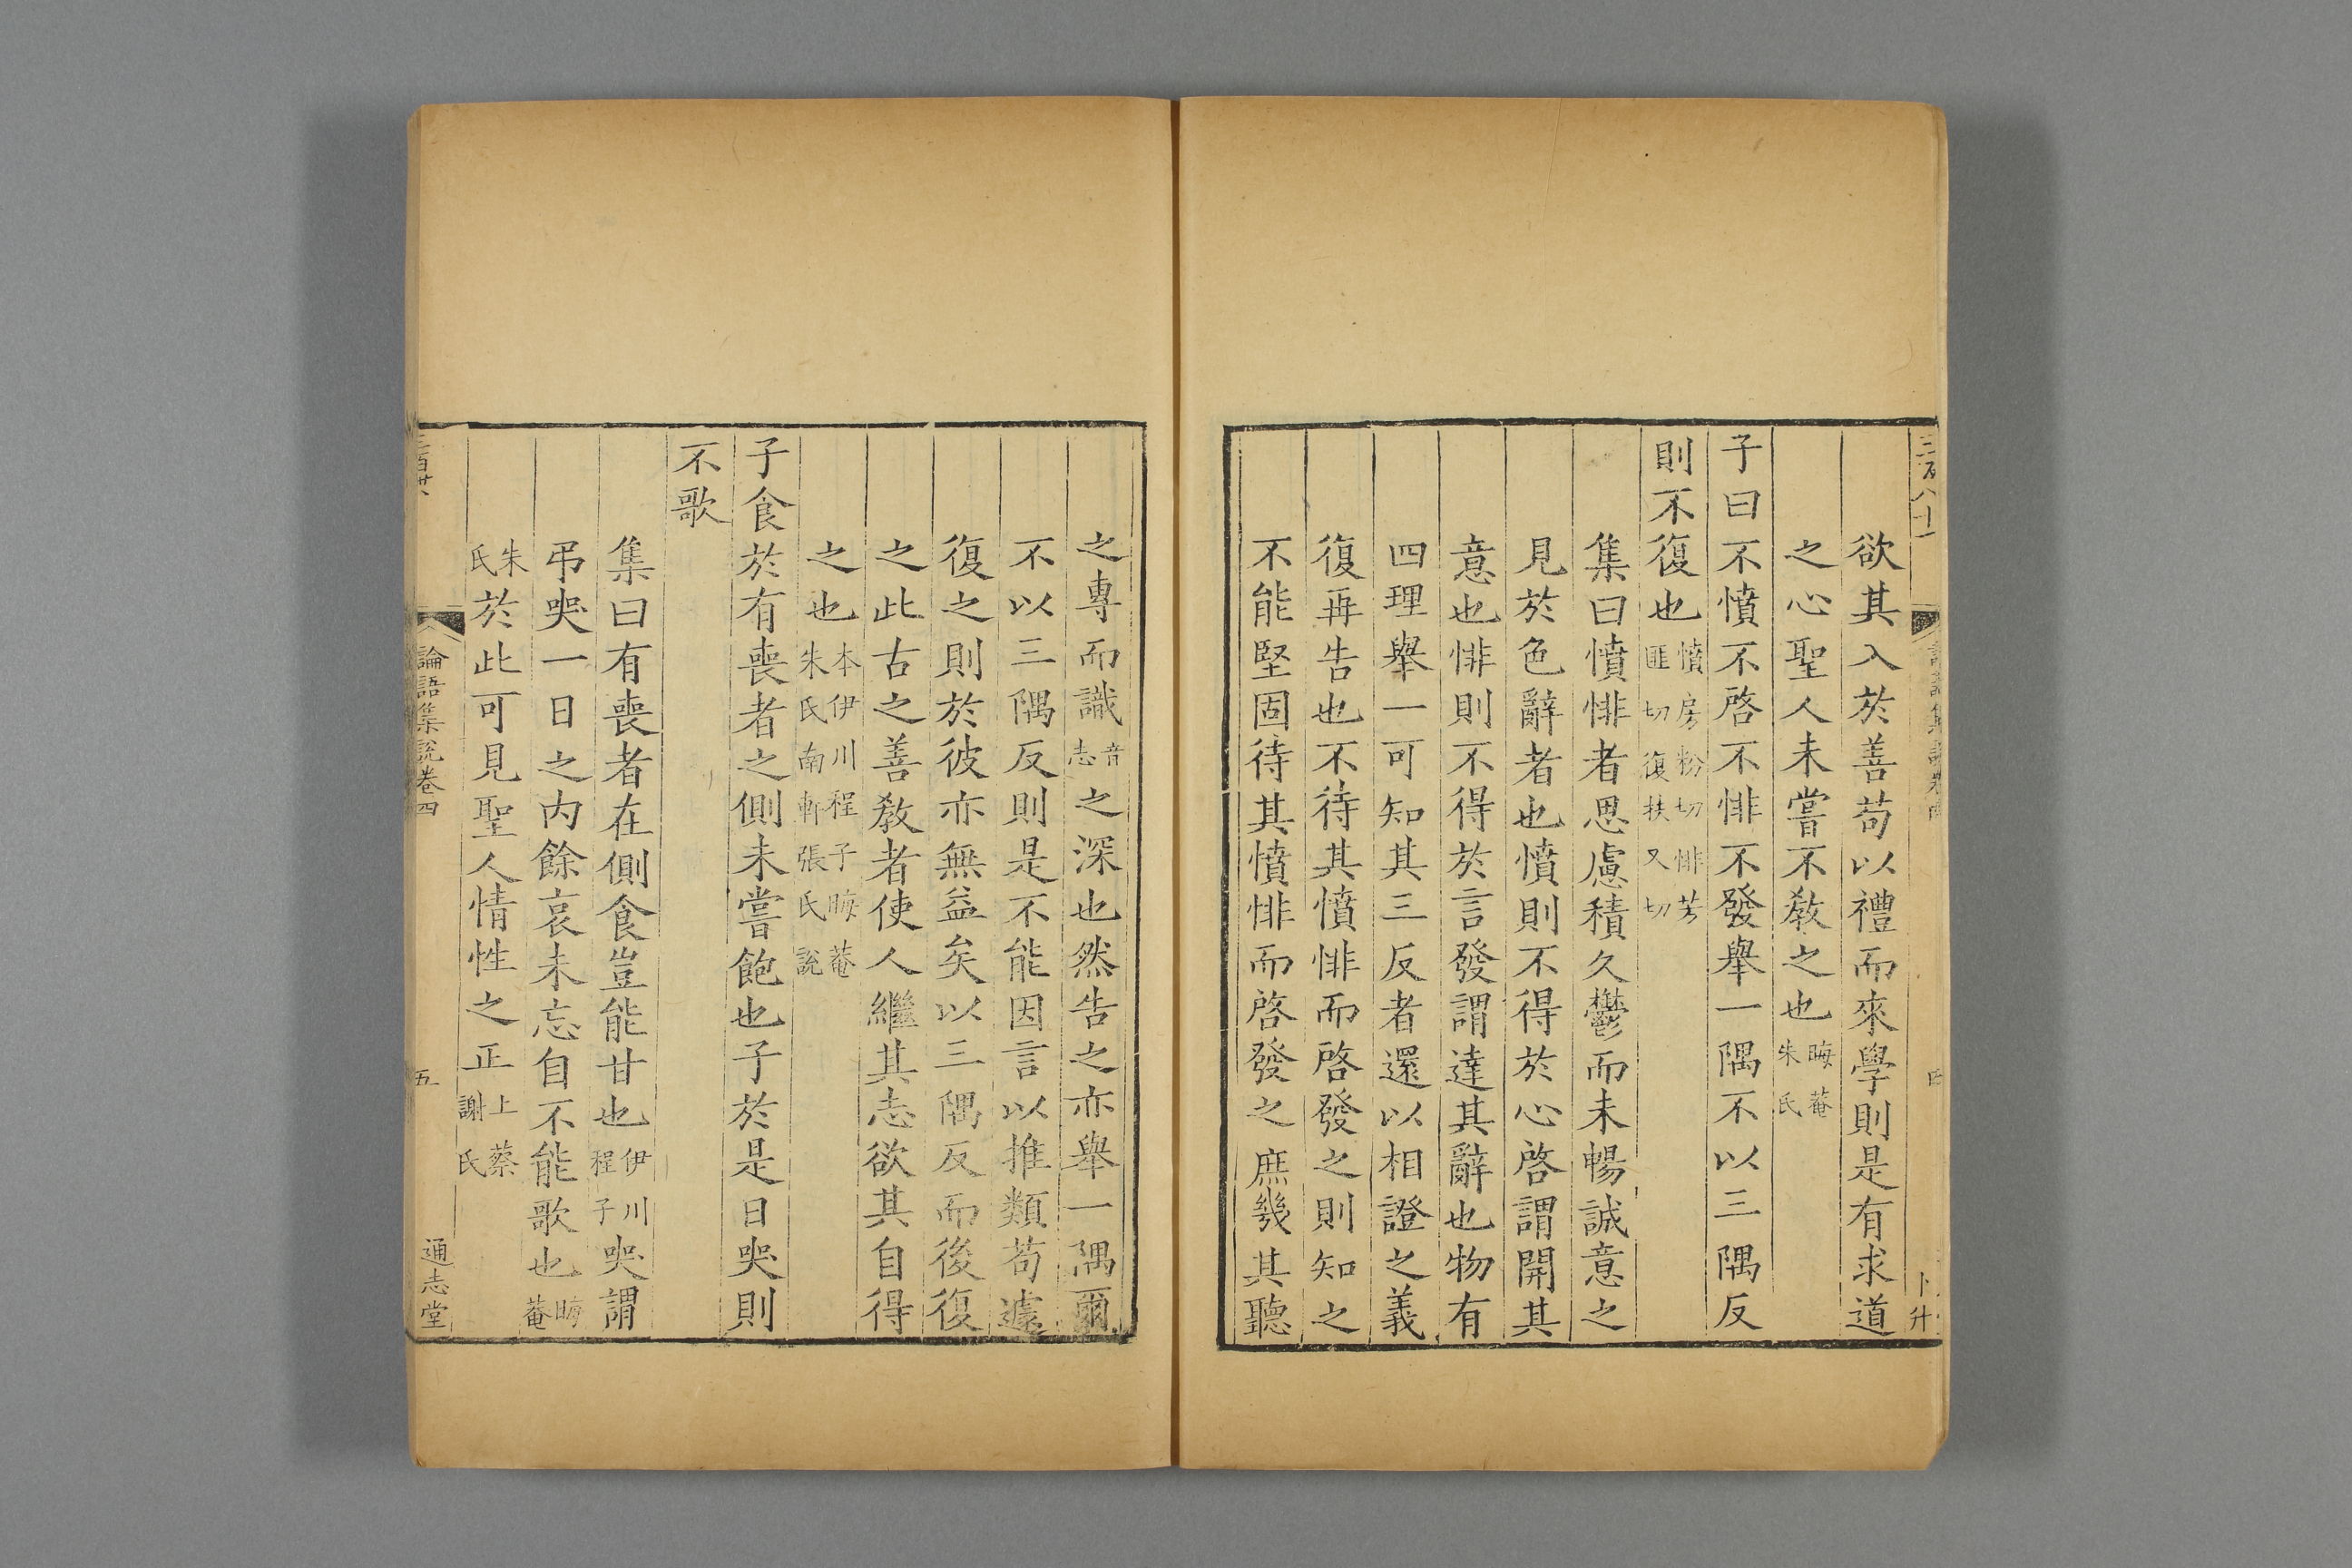 欲其入於善苟以禮而來學則是有求道
之心聖人未嘗不敎之也晦菴朱氏
子曰不憤不啓不悱不發舉一隅不以三隅反
則不復也憤房粉切悱芳匪切復扶又切
集曰憤悱者思慮積久鬱而未暢誠意之
見於色辭者也憤則不得於心啓謂開其
意也悱則不得於言發謂達其辭也物有
四理舉一可知其三反者還以相證之義
復再告也不待其憤悱而啓發之則知之
不能堅固待其憤悱而啓發之庶幾其聽
之專而識音志之深也然告之亦舉一隅爾
不以三隅反則是不能因言以推類苟遽
復之則於彼亦無益矣以三隅反而後復
之此古之善敎者使人繼其志欲其自得
之也本伊川程子晦菴朱氏南軒張氏說
子食於有喪者之側未嘗飽也子於是日哭則
不歌
集曰有喪者在側食豈能甘也伊川程子哭謂
弔哭一日之內餘哀未忘自不能歌也晦菴
朱氏於此可見聖人情性之正上蔡謝氏
論語集說卷四
五
通志堂